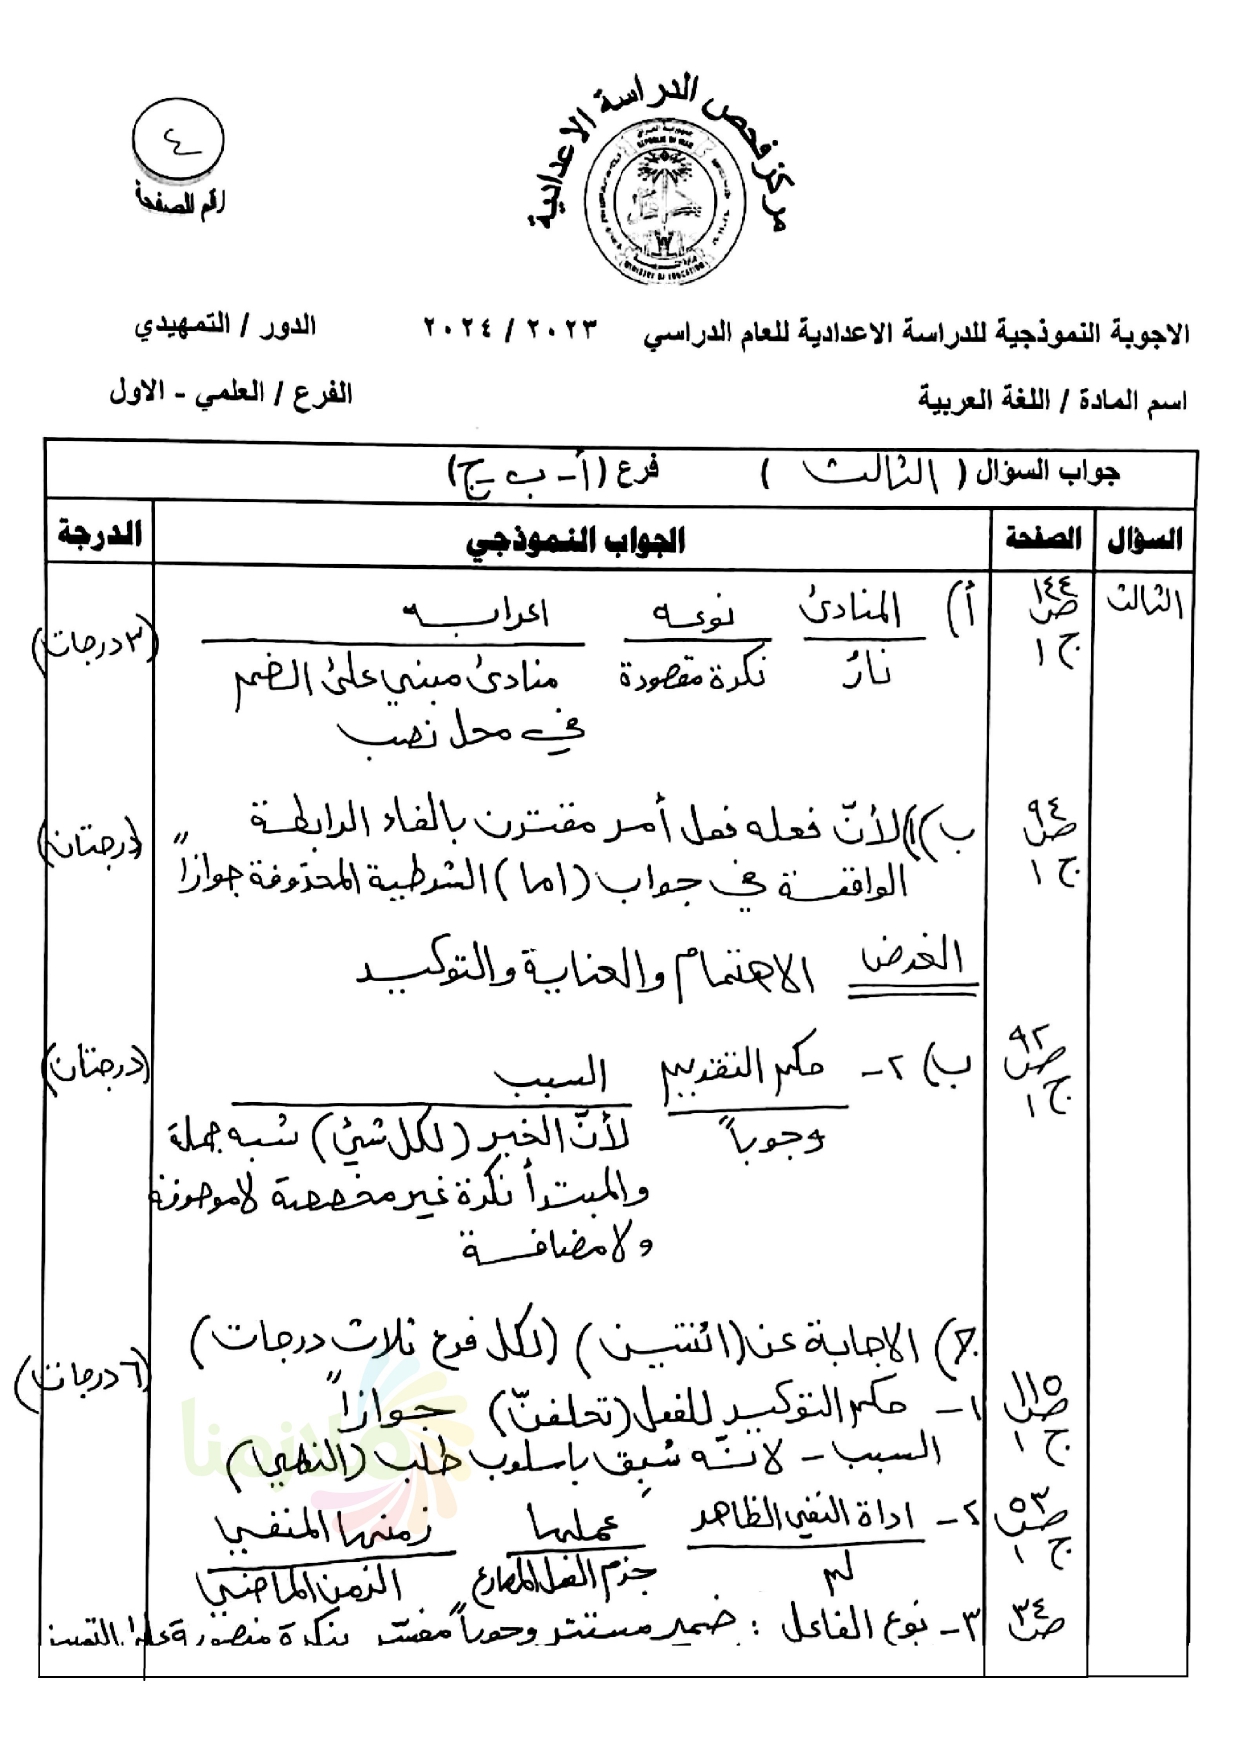 مركز فحص الدراسة الاعدادية
٤
رقم الصفحة
REPUBLIC OF IRAQ
MINISTRY OF EDUCATION
الاجوبة النموذجية للدراسة الاعدادية للعام الدراسي ٢٠٢٣ / ٢٠٢٤ الدور / التمهيدي
اسم المادة / اللغة العربية الفرع / العلمي - الاول
جواب السؤال ( الثالث ) فرع (أ - ب - ج)
السؤال الصفحة الجواب النموذجي الدرجة
الثالث ص ١٤٤ ج ١ أ) المنادى نوعه اعرابه (٣ درجات)
نارُ نكرة مقصودة منادى مبني على الضم
في محل نصب
ص ٩٤ ج ١ ب) ١) لأنّ فعله فعل أمر مقترن بالفاء الرابطة (درجتان)
الواقعة في جواب (اما) الشرطية المحذوفة جوازاً
الغرض الاهتمام والعناية والتوكيد
ص ٩٢ ج ١ ب) ٢- حكم التقديم السبب (درجتان)
وجوباً لأنّ الخبر (لكل شيٍ) شبه جملة
والمبتدأ نكرة غير مخصصة لا موصوفة
ولا مضافة
ج) الاجابة عن (اثنتين) (لكل فرع ثلاث درجات) (٦ درجات)
ص ١١٥ ج ١ ١- حكم التوكيد للفعل (تحلفنّ) جوازاً
السبب - لانّه سُبِق باسلوب طلب (النهي)
ص ٥٣ ج ١ ٢- اداة النفي الظاهر عملها زمنها المنفي
لم جزم الفعل المضارع الزمن الماضي
ص ٣٤ ٣- نوع الفاعل : ضمير مستتر وجوباً مفسّر بنكرة منصوبة على التمييز
ملازمنا